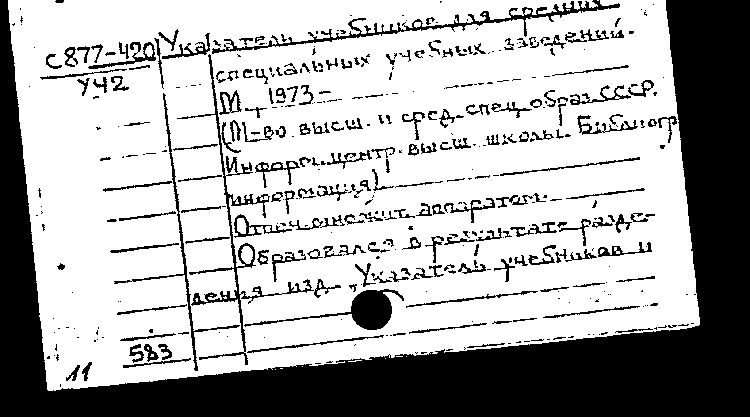 С877-420 Указатель учебников для средних
У42 специальных учебных заведений.
М., 1973-
(М-во высш. и сред. спец. образ. СССР.
Информ. центр высш. школы. Библиогр
информация).
Отпеч. множит. аппаратом.
Образовался в результате разде-
ления изд. „Указатель учебников и
583
11